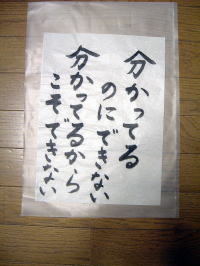 分かってる
のにできない
分かってるから
こそできない